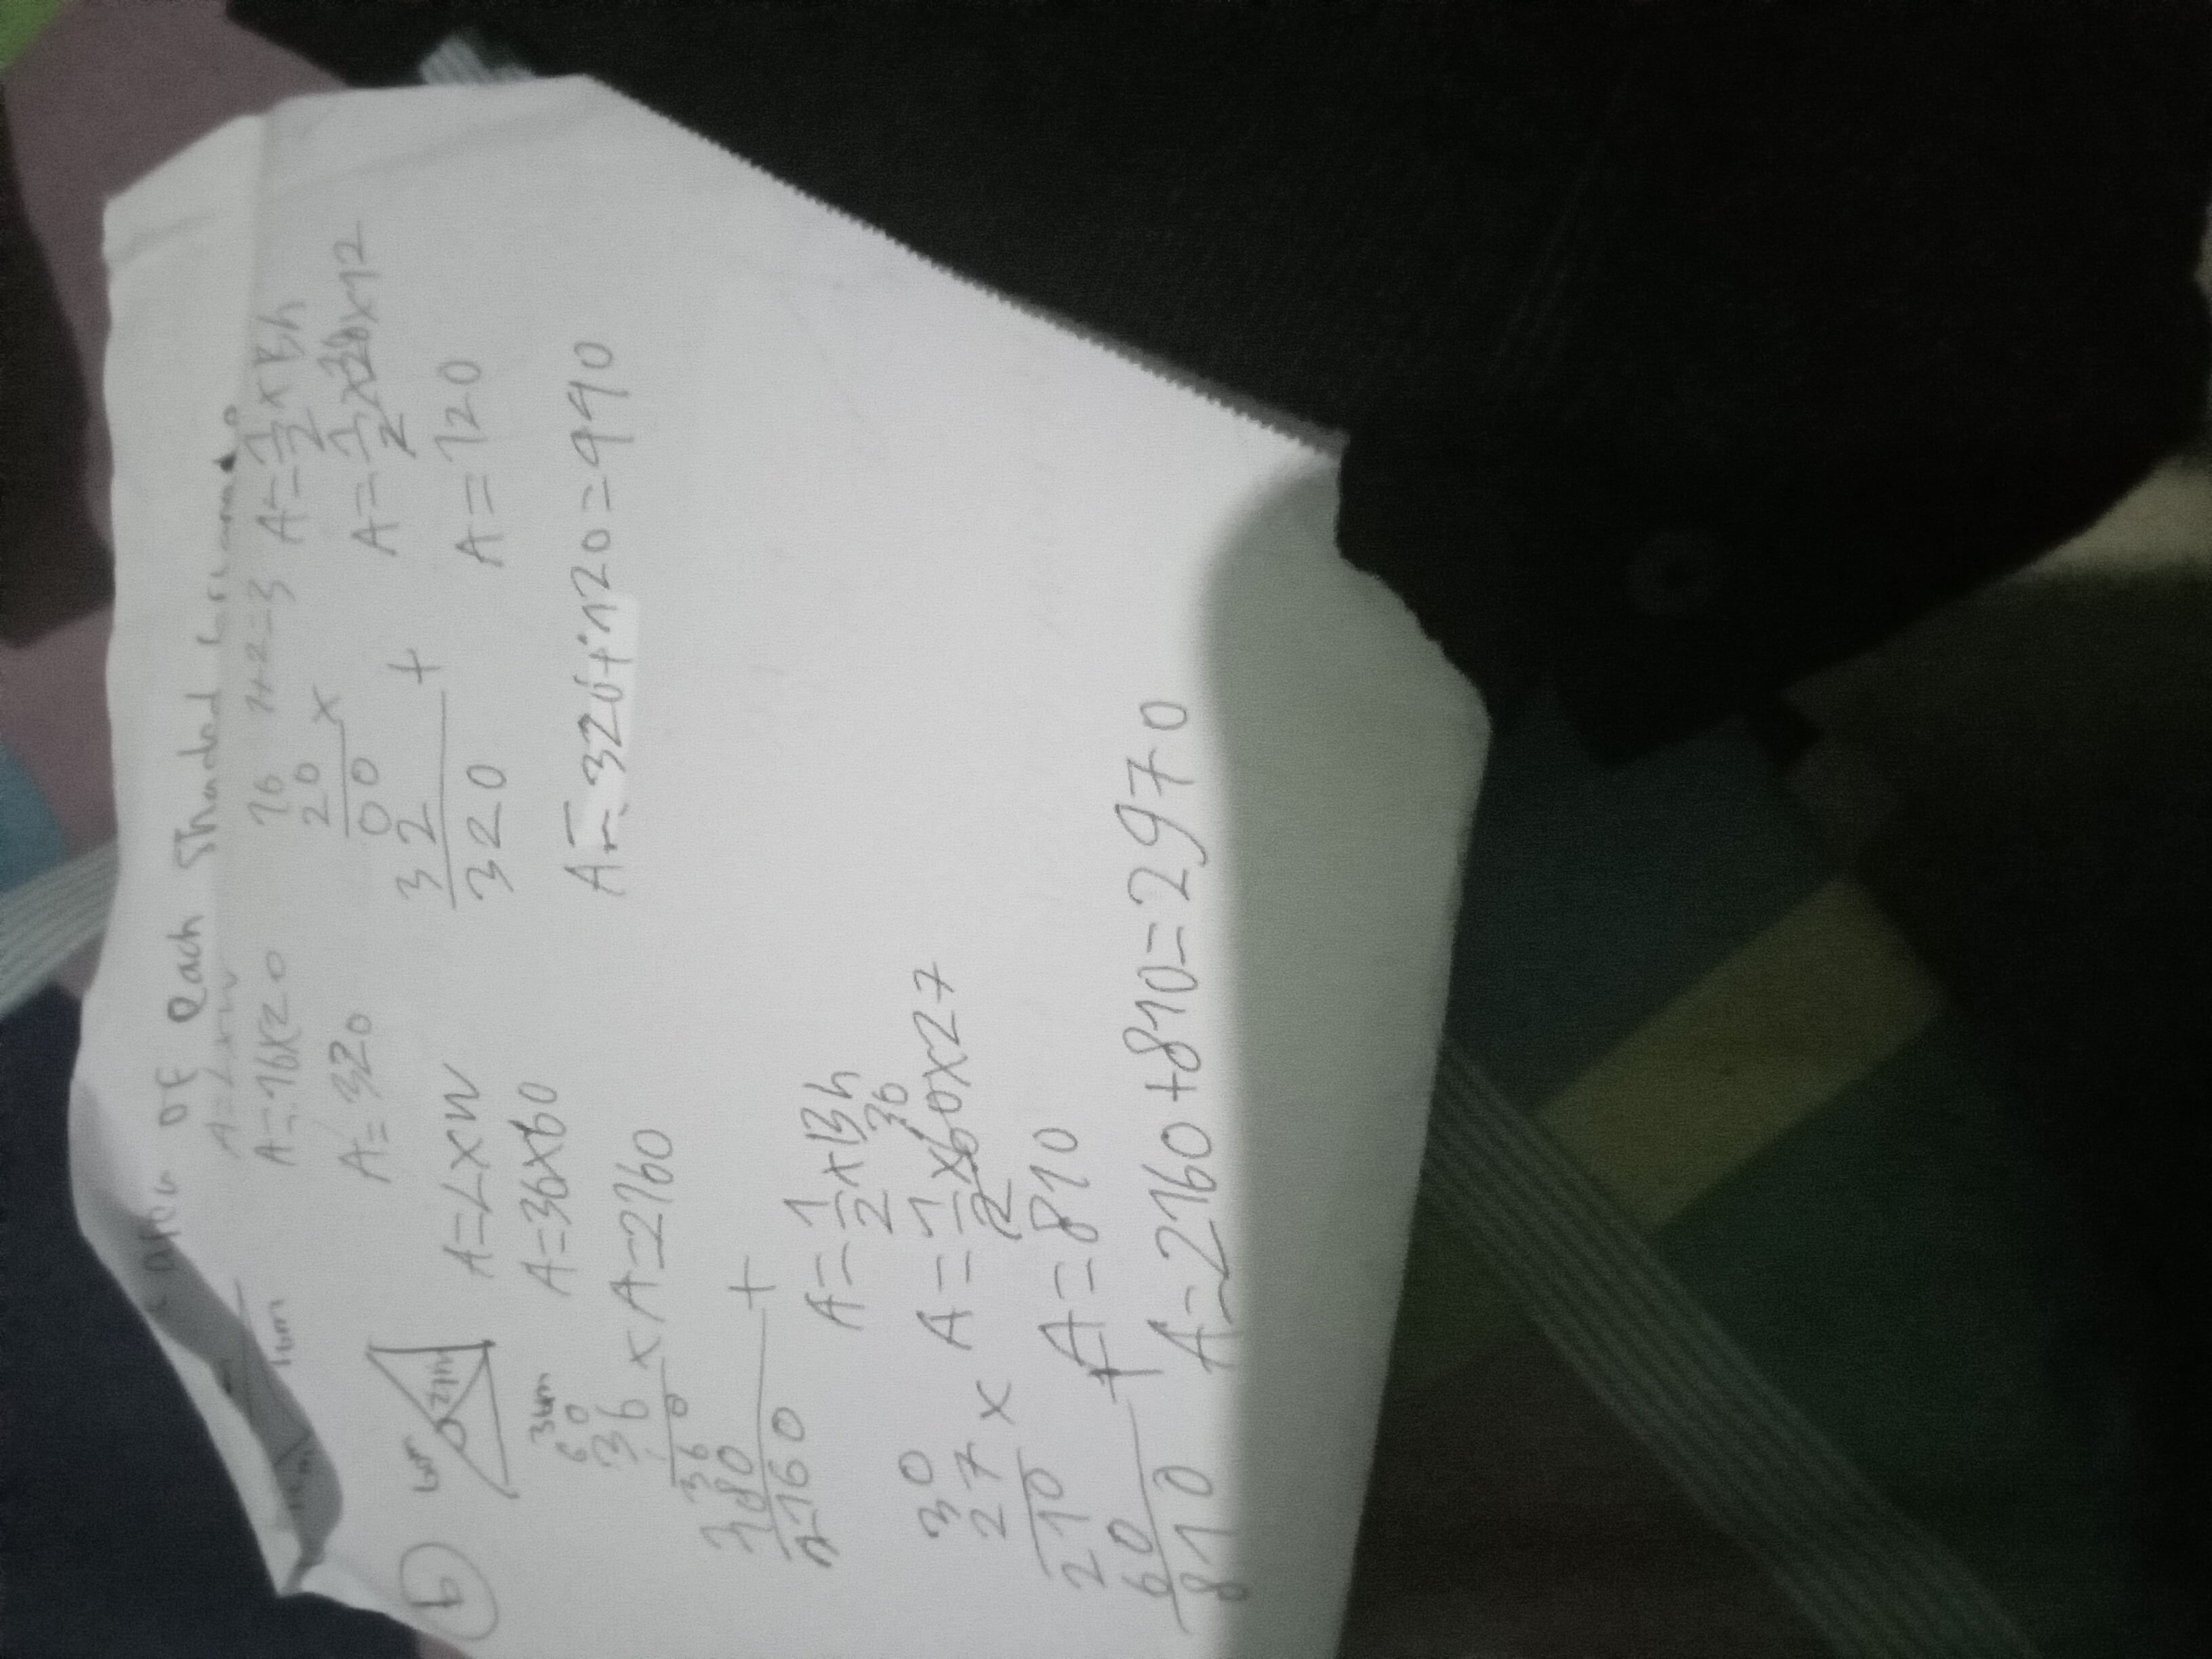 area of each shaded
A=L×W
A=16×20
A=320
16
20 ×
00
32 +
320
1+2=3
A=1/2×Bh
A=1/2×20×12
A=120
A=320+120=440
b
A=L×W
A=36×60
A=2160
60
36 ×
360
180 +
2160
A=1/2×Bh
30
A=1/2×60×27
A=810
30
27 ×
210
60 +
810
A=2160+810=2970